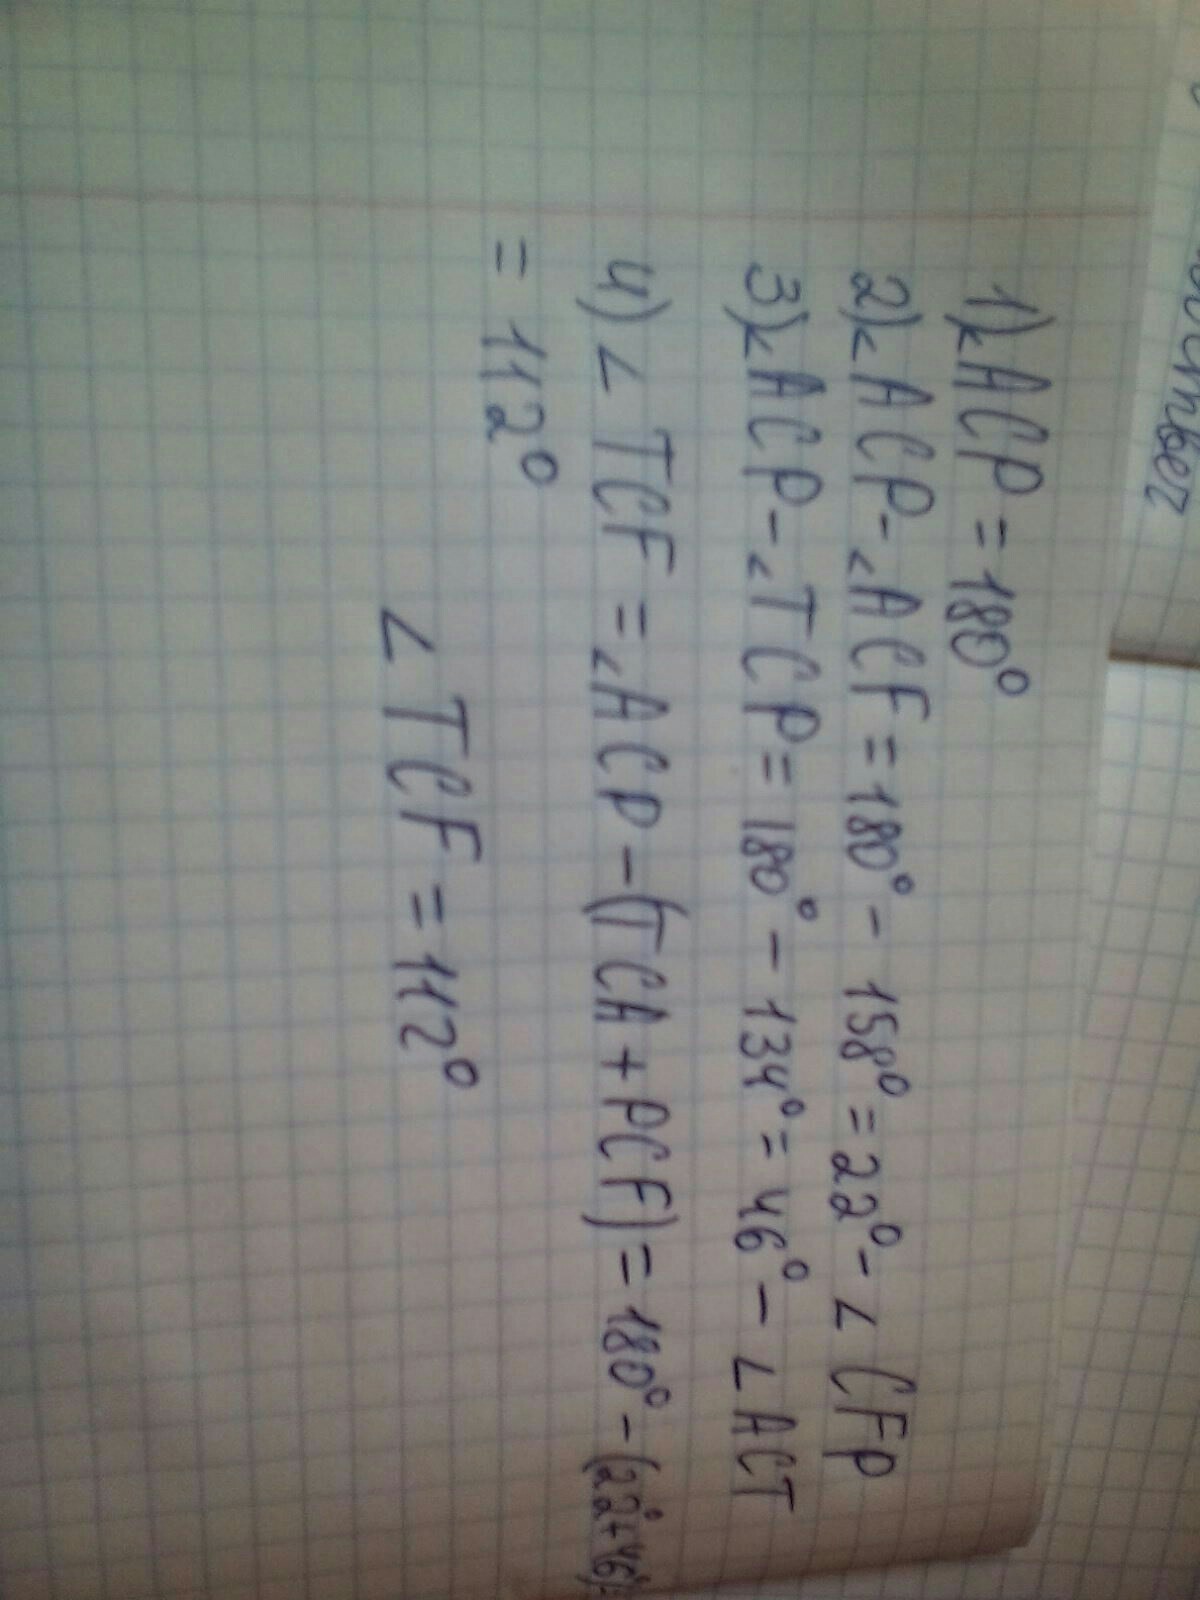 1)∠ACP = 180°
2)∠ACP-∠ACF = 180° - 158° = 22° - ∠ CFP
3)∠ACP-∠TCP = 180° - 134° = 46° - ∠ ACT
4) ∠ TCF = ∠ACP - (TCA + PCF) = 180° - (22°+46)=
= 112°
∠ TCF = 112°